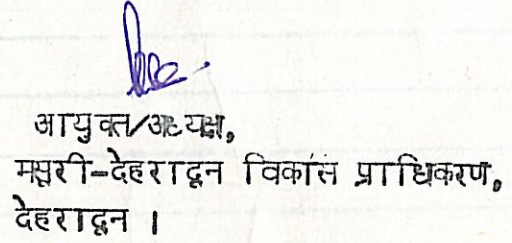 आयुक्त/अध्यक्ष,
मसूरी-देहरादून विकास प्राधिकरण,
देहरादून ।